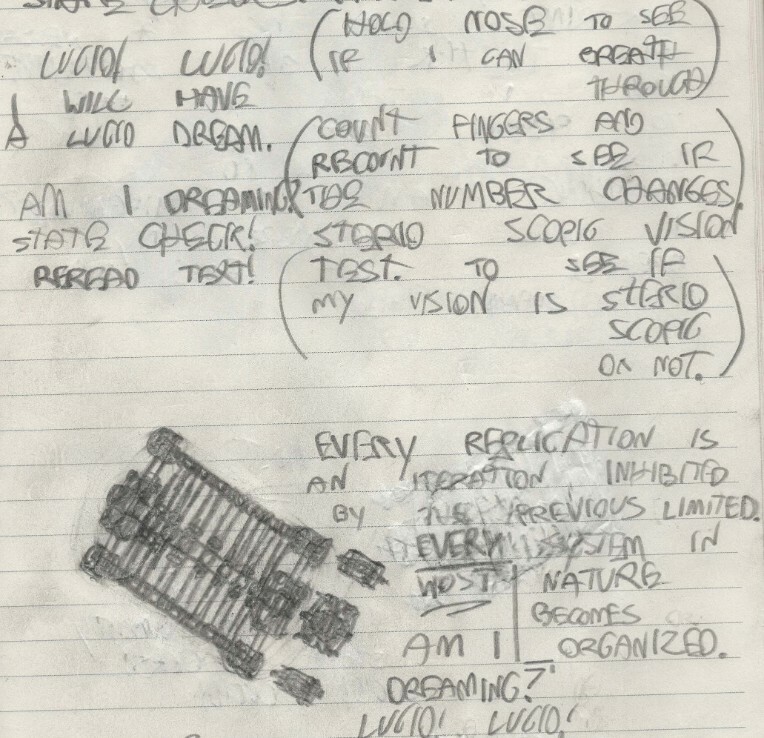 LUCID! LUCID!
I WILL HAVE
A LUCID DREAM.
AM I DREAMING?
STATE CHECK!
REREAD TEXT!
(HOLD NOSE TO SEE
IF I CAN BREATH
THROUGH)
(COUNT FINGERS AND
RECOUNT TO SEE IF
THE NUMBER CHANGES)
STERIO SCOPIC VISION
(TEST. TO SEE IF
MY VISION IS STERIO
SCOPIC
OR NOT.)
EVERY REPLICATION IS
AN ITERATION INHIBITED
BY THE PREVIOUS LIMITED.
EVERY SYSTEM IN
MOST NATURE
BECOMES
ORGANIZED.
AM I
DREAMING?
LUCID! LUCID!